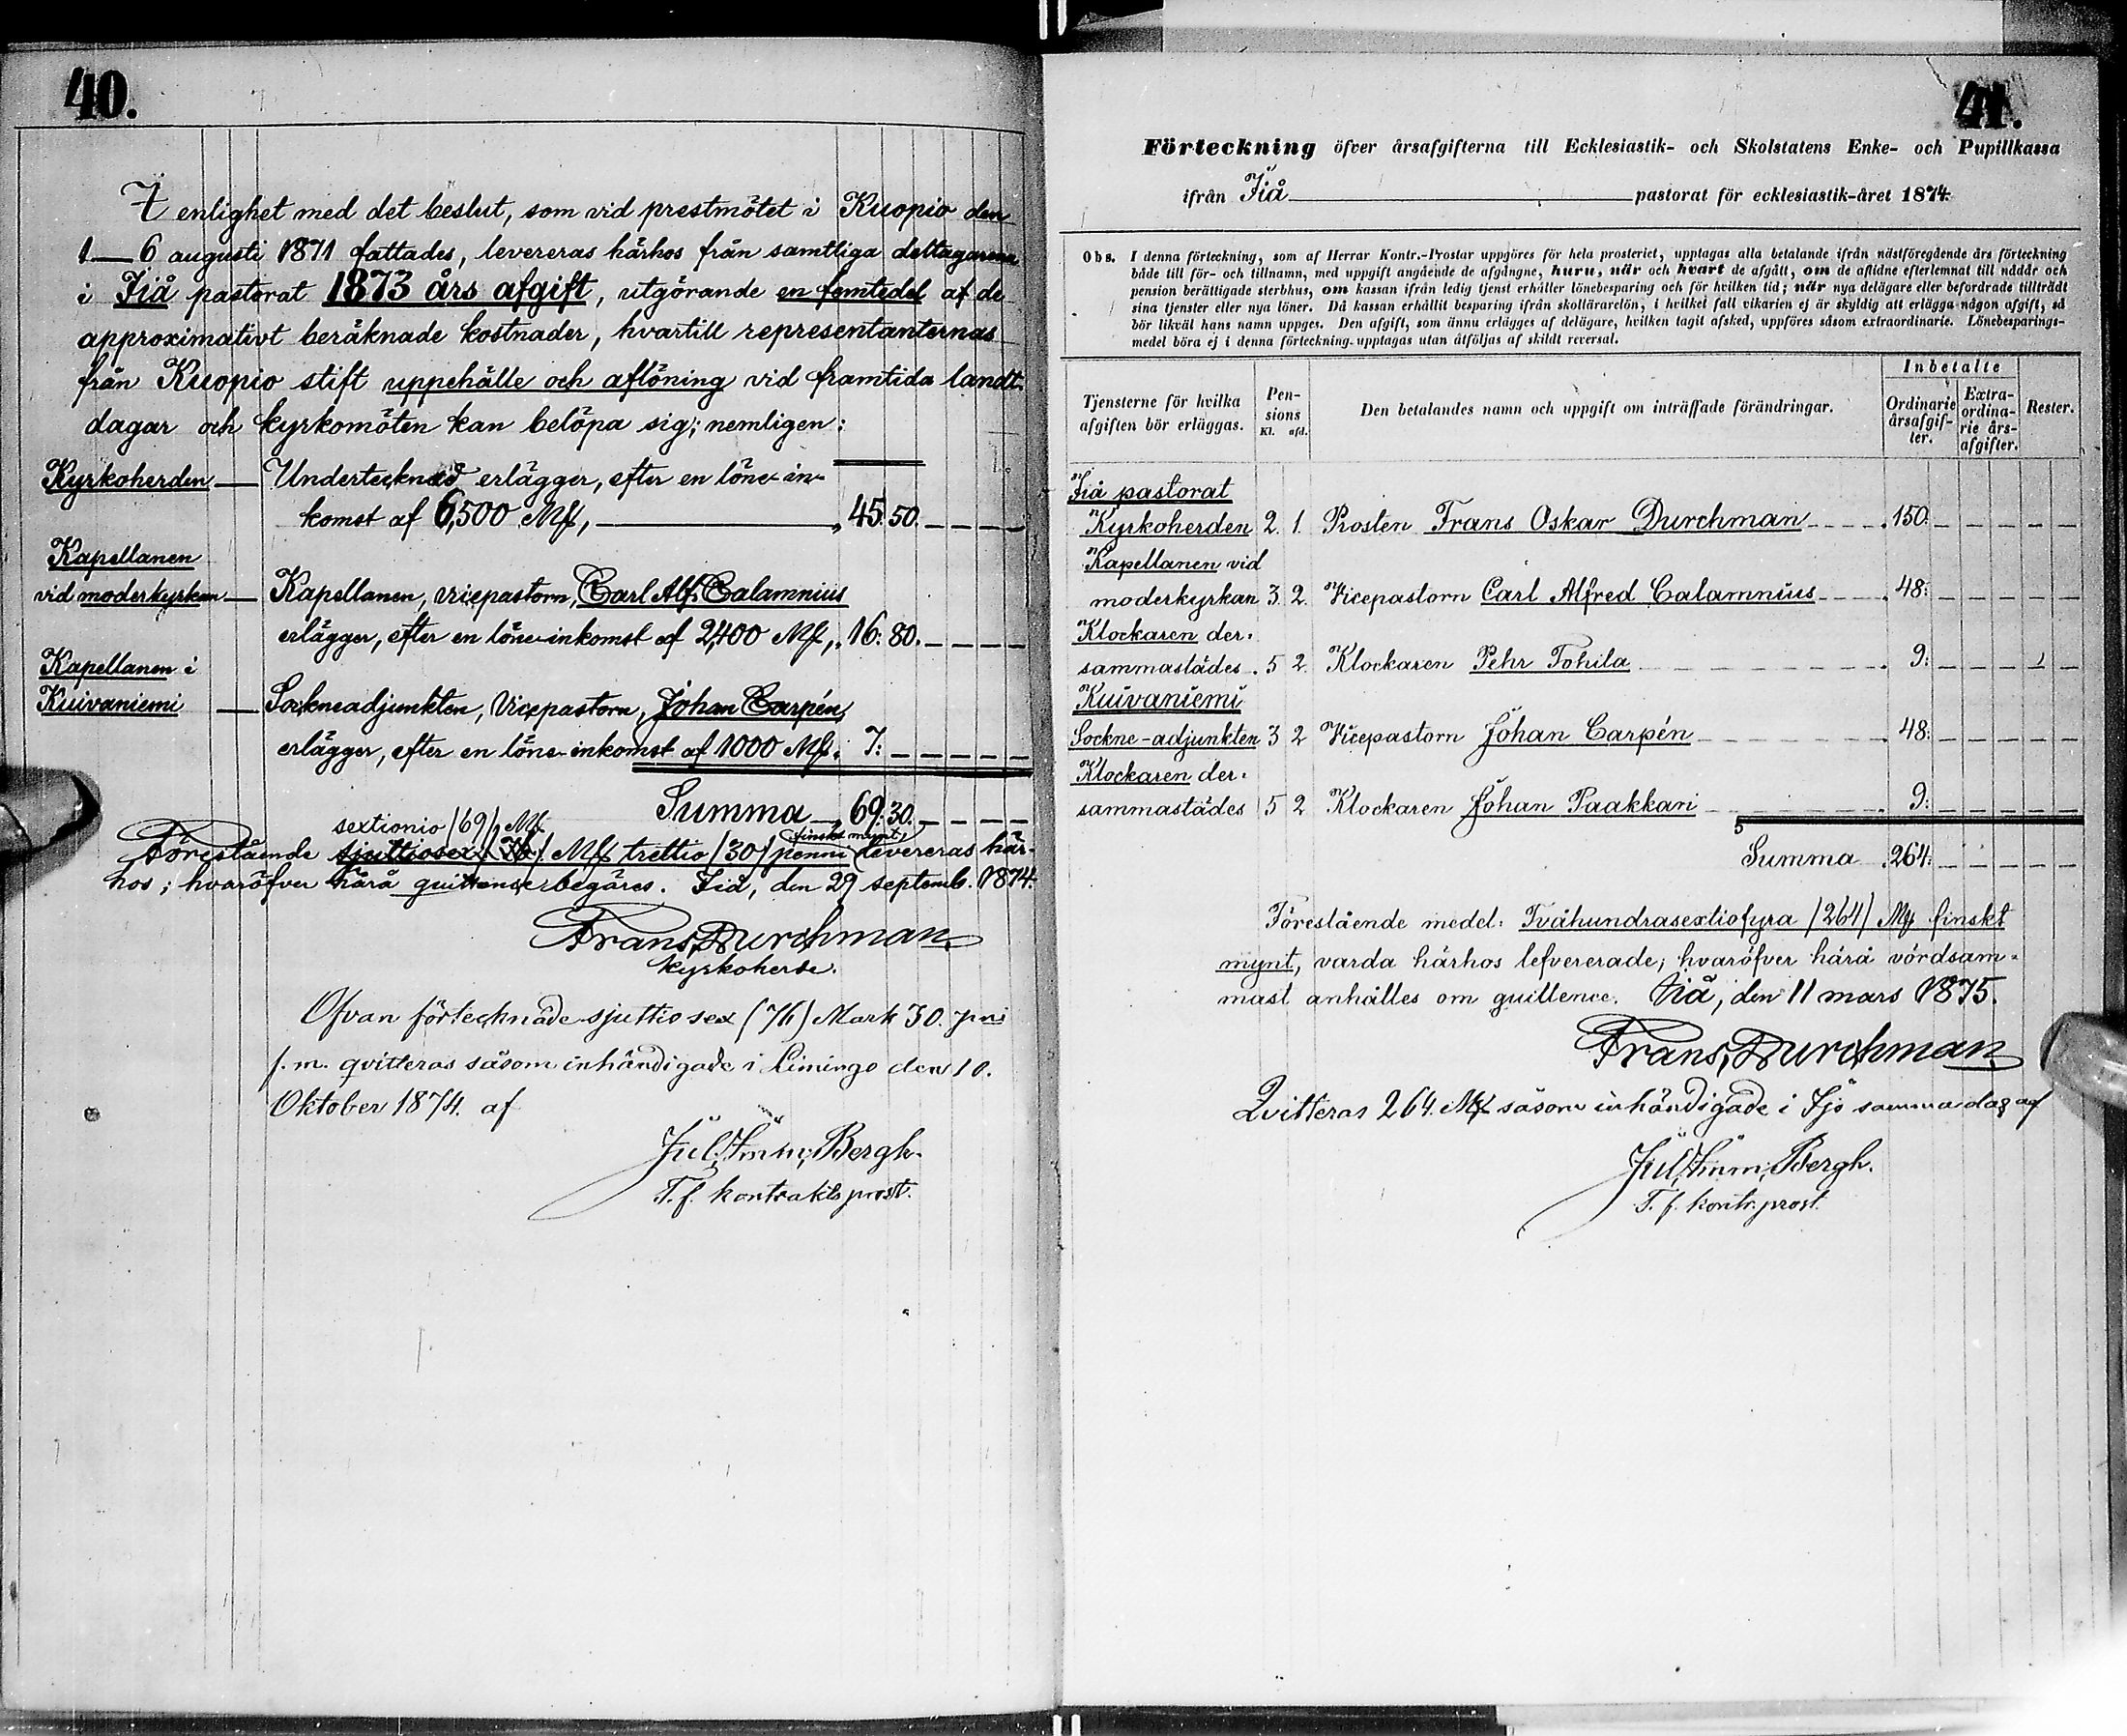 40.
I enlighet med det beslut, som vid prestmötet i Kuopio den
1—6 augusti 1871 fattades, levereras härhos från samtliga deltagarena
i Jiå pastorat 1873 års afgift, utgörande en femtedel af de
approximativt beräknade kostnader, hvartill representanternas
från Kuopio stift uppehälle och aflöning vid framtida landt-
dagar och kyrkomöten kan belöpa sig; nemligen:
Kyrkoherden — Undertecknad erlägger, efter en löne-in-
komst af 6,500 Mk, — „ 45. 50.
Kapellanen
vid moderkyrkan — Kapellanen, vicepastorn, Carl Alf. Calamnius
erlägger, efter en löne-inkomst af 2,400 Mk, „ 16. 80.
Kapellanen i
Kuivaniemi — Sockneadjunkten, Vicepastorn, Johan Carpén,
erlägger, efter en löne-inkomst af 1000 Mk. 7:
Summa „ 69. 30.
sextionio /69/ Mk
finskt mynt,
Förestående sjuttiosex /76/ Mk trettio /30/ penni levereras här-
hos; hvaröfver härå quittens erbegäres. Jiå, den 29 septemb. 1874.
Frans Durchman
kyrkoherde.
Ofvan förtecknade sjuttiosex (76) Mark 30. pni
f. m. qvitteras såsom inhändigade i Limingo den 10.
Oktober 1874. af
Jul. Imm. Bergh.
T. f. kontraktsprost.
41.
Förteckning öfver årsafgifterna till Ecklesiastik- och Skolstatens Enke- och Pupillkassa
ifrån Jiå pastorat för ecklesiastik-året 1874.
Obs. I denna förteckning, som af Herrar Kontr.-Prostar uppgöres för hela prosteriet, upptagas alla betalande ifrån nästföregående års förteckning
både till för- och tillnamn, med uppgift angående de afgångne, huru, när och hvart de afgått, om de aflidne efterlemnat till nådår och
pension berättigade sterbhus, om kassan ifrån ledig tjenst erhåller lönebesparing och för hvilken tid; när nya delägare eller befordrade tillträdt
sina tjenster eller nya löner. Då kassan erhållit besparing ifrån skollärarelön, i hvilket fall vikarien ej är skyldig att erlägga någon afgift, så
bör likväl hans namn uppges. Den afgift, som ännu erlägges af delägare, hvilken tagit afsked, uppföres såsom extraordinarie. Lönebesparings-
medel böra ej i denna förteckning upptagas utan åtföljas af skildt reversal.
Tjensterne för hvilka
afgiften bör erläggas.
Pen-
sions
Kl. afd.
Den betalandes namn och uppgift om inträffade förändringar.
Inbetalte
Ordinarie
årsafgif-
ter.
Extra-
ordina-
rie års-
afgifter.
Rester.
Jiå pastorat
Kyrkoherden 2. 1. Prosten Frans Oskar Durchman 150.
Kapellanen vid
moderkyrkan 3. 2. Vicepastorn Carl Alfred Calamnius 48:
Klockaren der-
sammastädes. 5 2. Klockaren Pehr Tohila 9:
Kuivaniemi
Sockne-adjunkten 3 2 Vicepastorn Johan Carpén 48:
Klockaren der-
sammastädes 5 2 Klockaren Johan Paakkari 9:
Summa 264:
Förestående medel: Tvåhundrasextiofyra /264/ Mk finskt
mynt, varda härhos lefvererade; hvaröfver härå vördsam-
mast anhålles om quittence. Jiå, den 11 mars 1875.
Frans Durchman
Qvitteras 264. Mk såsom inhändigade i Ijo samma dag af
Jul. Imm. Bergh.
T. f. kontr. prost.